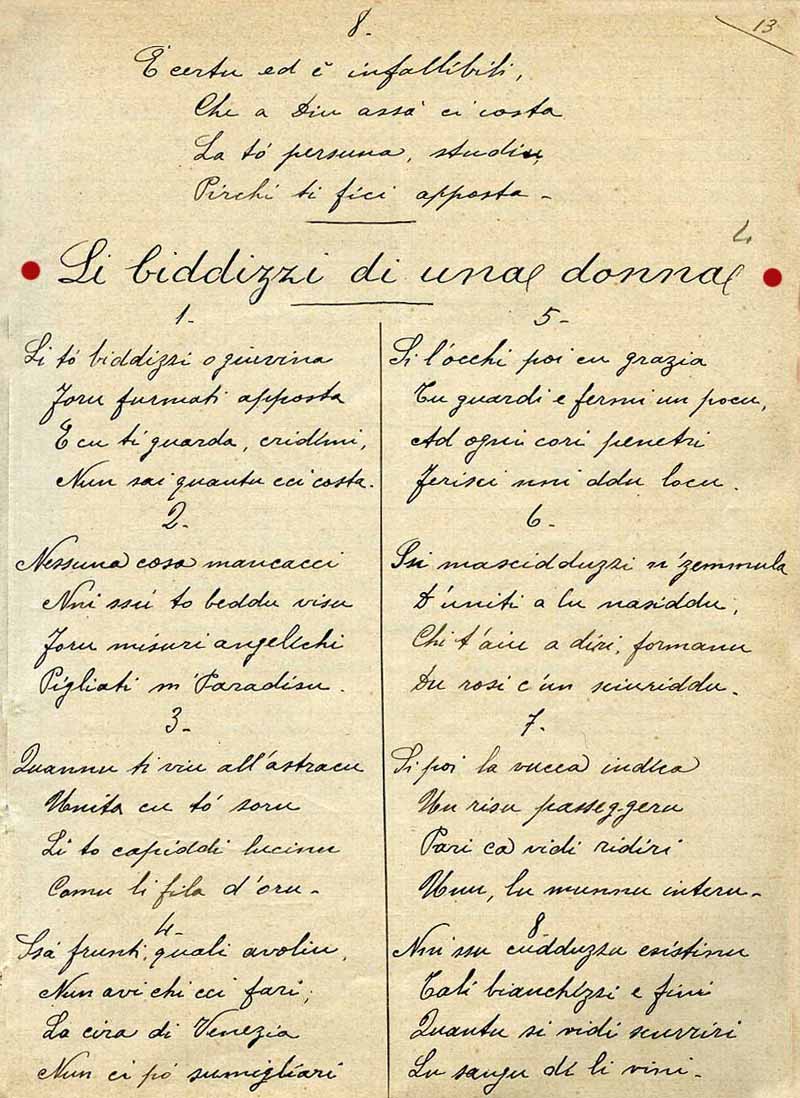 8.
13
È certu ed è infallibili,
Che a Diu assà ci costa
La tó persuna, studiu,
Pirchi ti fici apposta -
4
Li biddizzi di una donna
1-
Li tó biddizzi o giuvina
Foru furmati apposta
E cu ti guarda, cridimi,
Nun sai quantu cci costa.
2-
Nessuna cosa mancacci
Nni ssú to beddu visu
Foru misuri angelichi
Pigliati m'Paradisu.
3-
Quannu ti viu all'astracu
Unita cu tó soru
Li to capiddi lucinu
Comu li fila d'oru -
4-
Ssá frunti, quali avoliu,
Nun avi chi cci fari;
La cira di Venezia
Nun ci pó sumigliari
5-
Si l'occhi poi cu grazia
Tu guardi e fermi un pocu,
Ad ogni cori penetri
Ferisci nni ddu locu.
6-
Ssi mascidduzzi n'zemmula
D'uniti a lu nasiddu,
Chi t'aiu a diri, formanu
Du rosi c'un sciuriddu.
7-
Si poi la vucca indica
Un risu passeggeru
Pari ca vidi ridiri
Unu, lu munnu interu -
8
Nni ssu cudduzzu esistinu
Tali bianchizzi e fini
Quantu si vidi scurriri
Lu sangu di li vini -